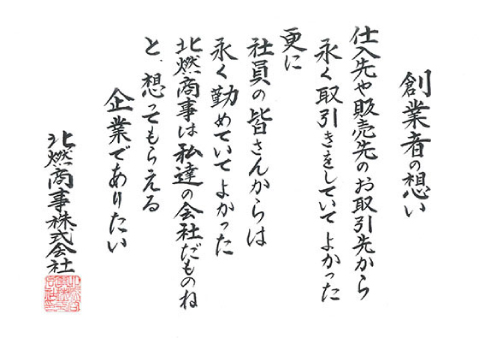 創業者の想い
仕入先や販売先のお取引先から
永く取引きをしていてよかった
更に
社員の皆さんからは
永く勤めていてよかった
北燃商事は私達の会社だものね
と、想ってもらえる
企業でありたい
北燃商事株式会社